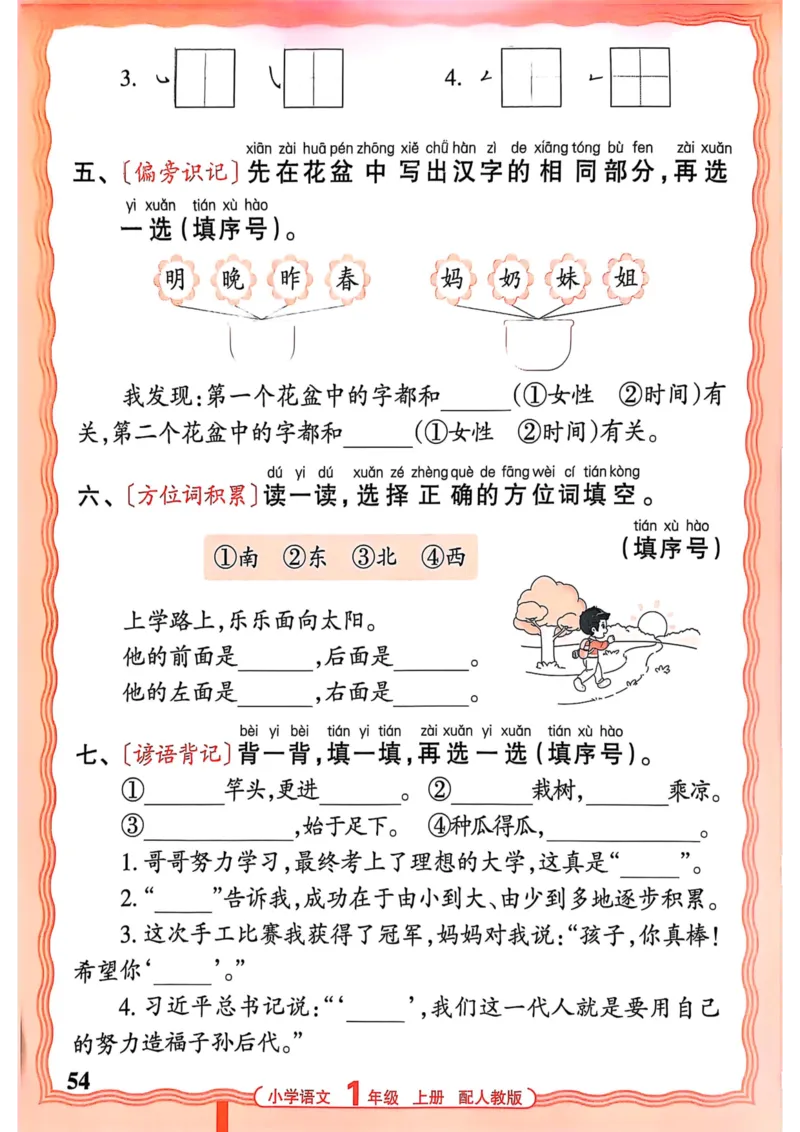 3. ㇃ ㇂ 4. ㇗ ㇀
xiān zài huā pén zhōng xiě chū hàn zì de xiāng tóng bù fen zài xuǎn
五、〔偏旁识记〕先在花盆中写出汉字的相同部分,再选
yi xuǎn tián xù hào
一选(填序号)。
明 晚 昨 春 妈 奶 妹 姐
我发现:第一个花盆中的字都和______(①女性 ②时间)有
关,第二个花盆中的字都和______(①女性 ②时间)有关。
dú yi dú xuǎn zé zhèng què de fāng wèi cí tián kòng
六、〔方位词积累〕读一读,选择正确的方位词填空。
tián xù hào
(填序号)
①南 ②东 ③北 ④西
上学路上,乐乐面向太阳。
他的前面是______,后面是______。
他的左面是______,右面是______。
bèi yi bèi tián yi tián zài xuǎn yi xuǎn tián xù hào
七、〔谚语背记〕背一背,填一填,再选一选(填序号)。
①______竿头,更进______。 ②______栽树,______乘凉。
③____________,始于足下。 ④种瓜得瓜,____________。
1. 哥哥努力学习,最终考上了理想的大学,这真是“_____”。
2. “_____”告诉我,成功在于由小到大、由少到多地逐步积累。
3. 这次手工比赛我获得了冠军,妈妈对我说:“孩子,你真棒!
希望你‘_____’。”
4. 习近平总书记说:“‘_____’,我们这一代人就是要用自己
的努力造福子孙后代。”
54
小学语文 1年级 上册 配人教版